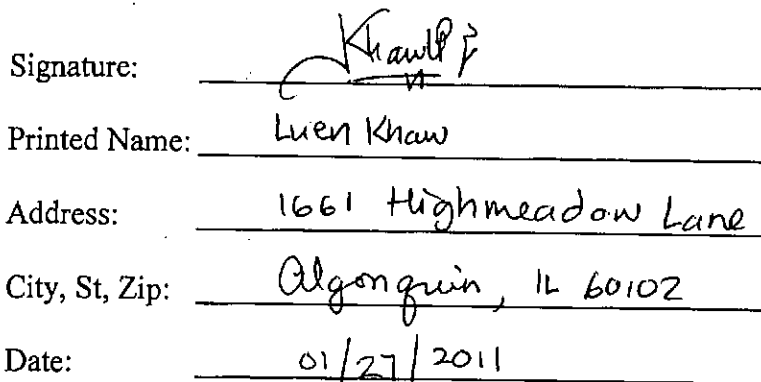 Signature:
Printed Name: Luen Khaw
Address: 1661 Highmeadow Lane
City, St, Zip: Algonquin, IL 60102
Date: 01/27/2011